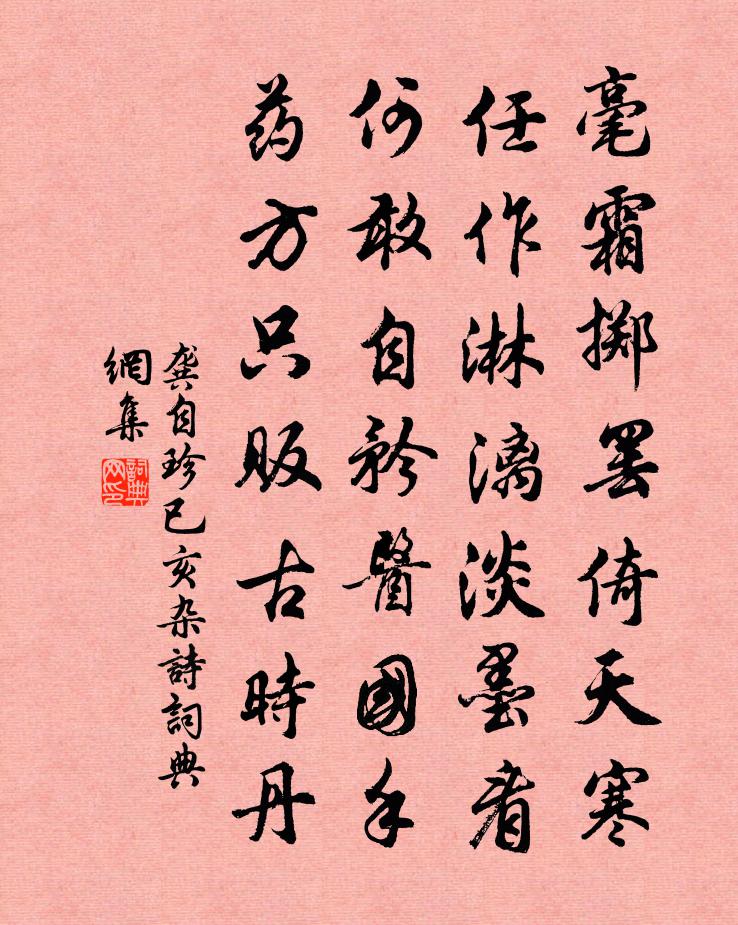 毫霜掷罢倚天寒
任作淋漓淡墨看
何敢自矜醫國手
药方只贩古時丹
龚自珍已亥杂詩詞典
網集
詞典网印